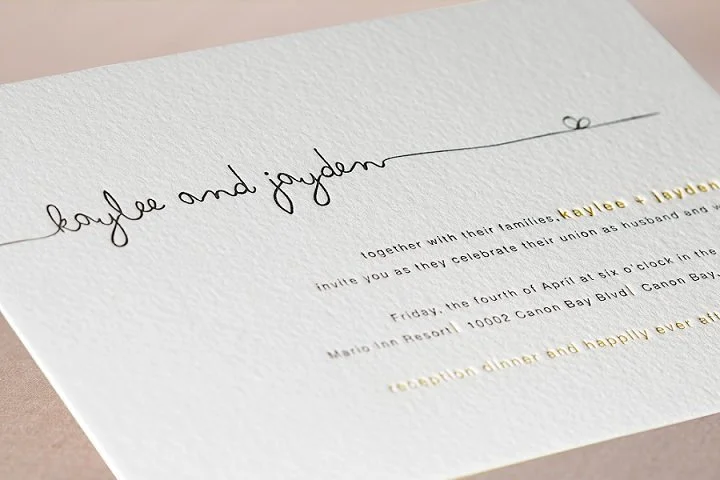 kaylee and jayden
together with their families, kaylee + jayden
invite you as they celebrate their union as husband and
Friday, the fourth of April at six o'clock in the
Mario Inn Resort| 10002 Canon Bay Blvd| Canon Bay,
reception dinner and happily ever